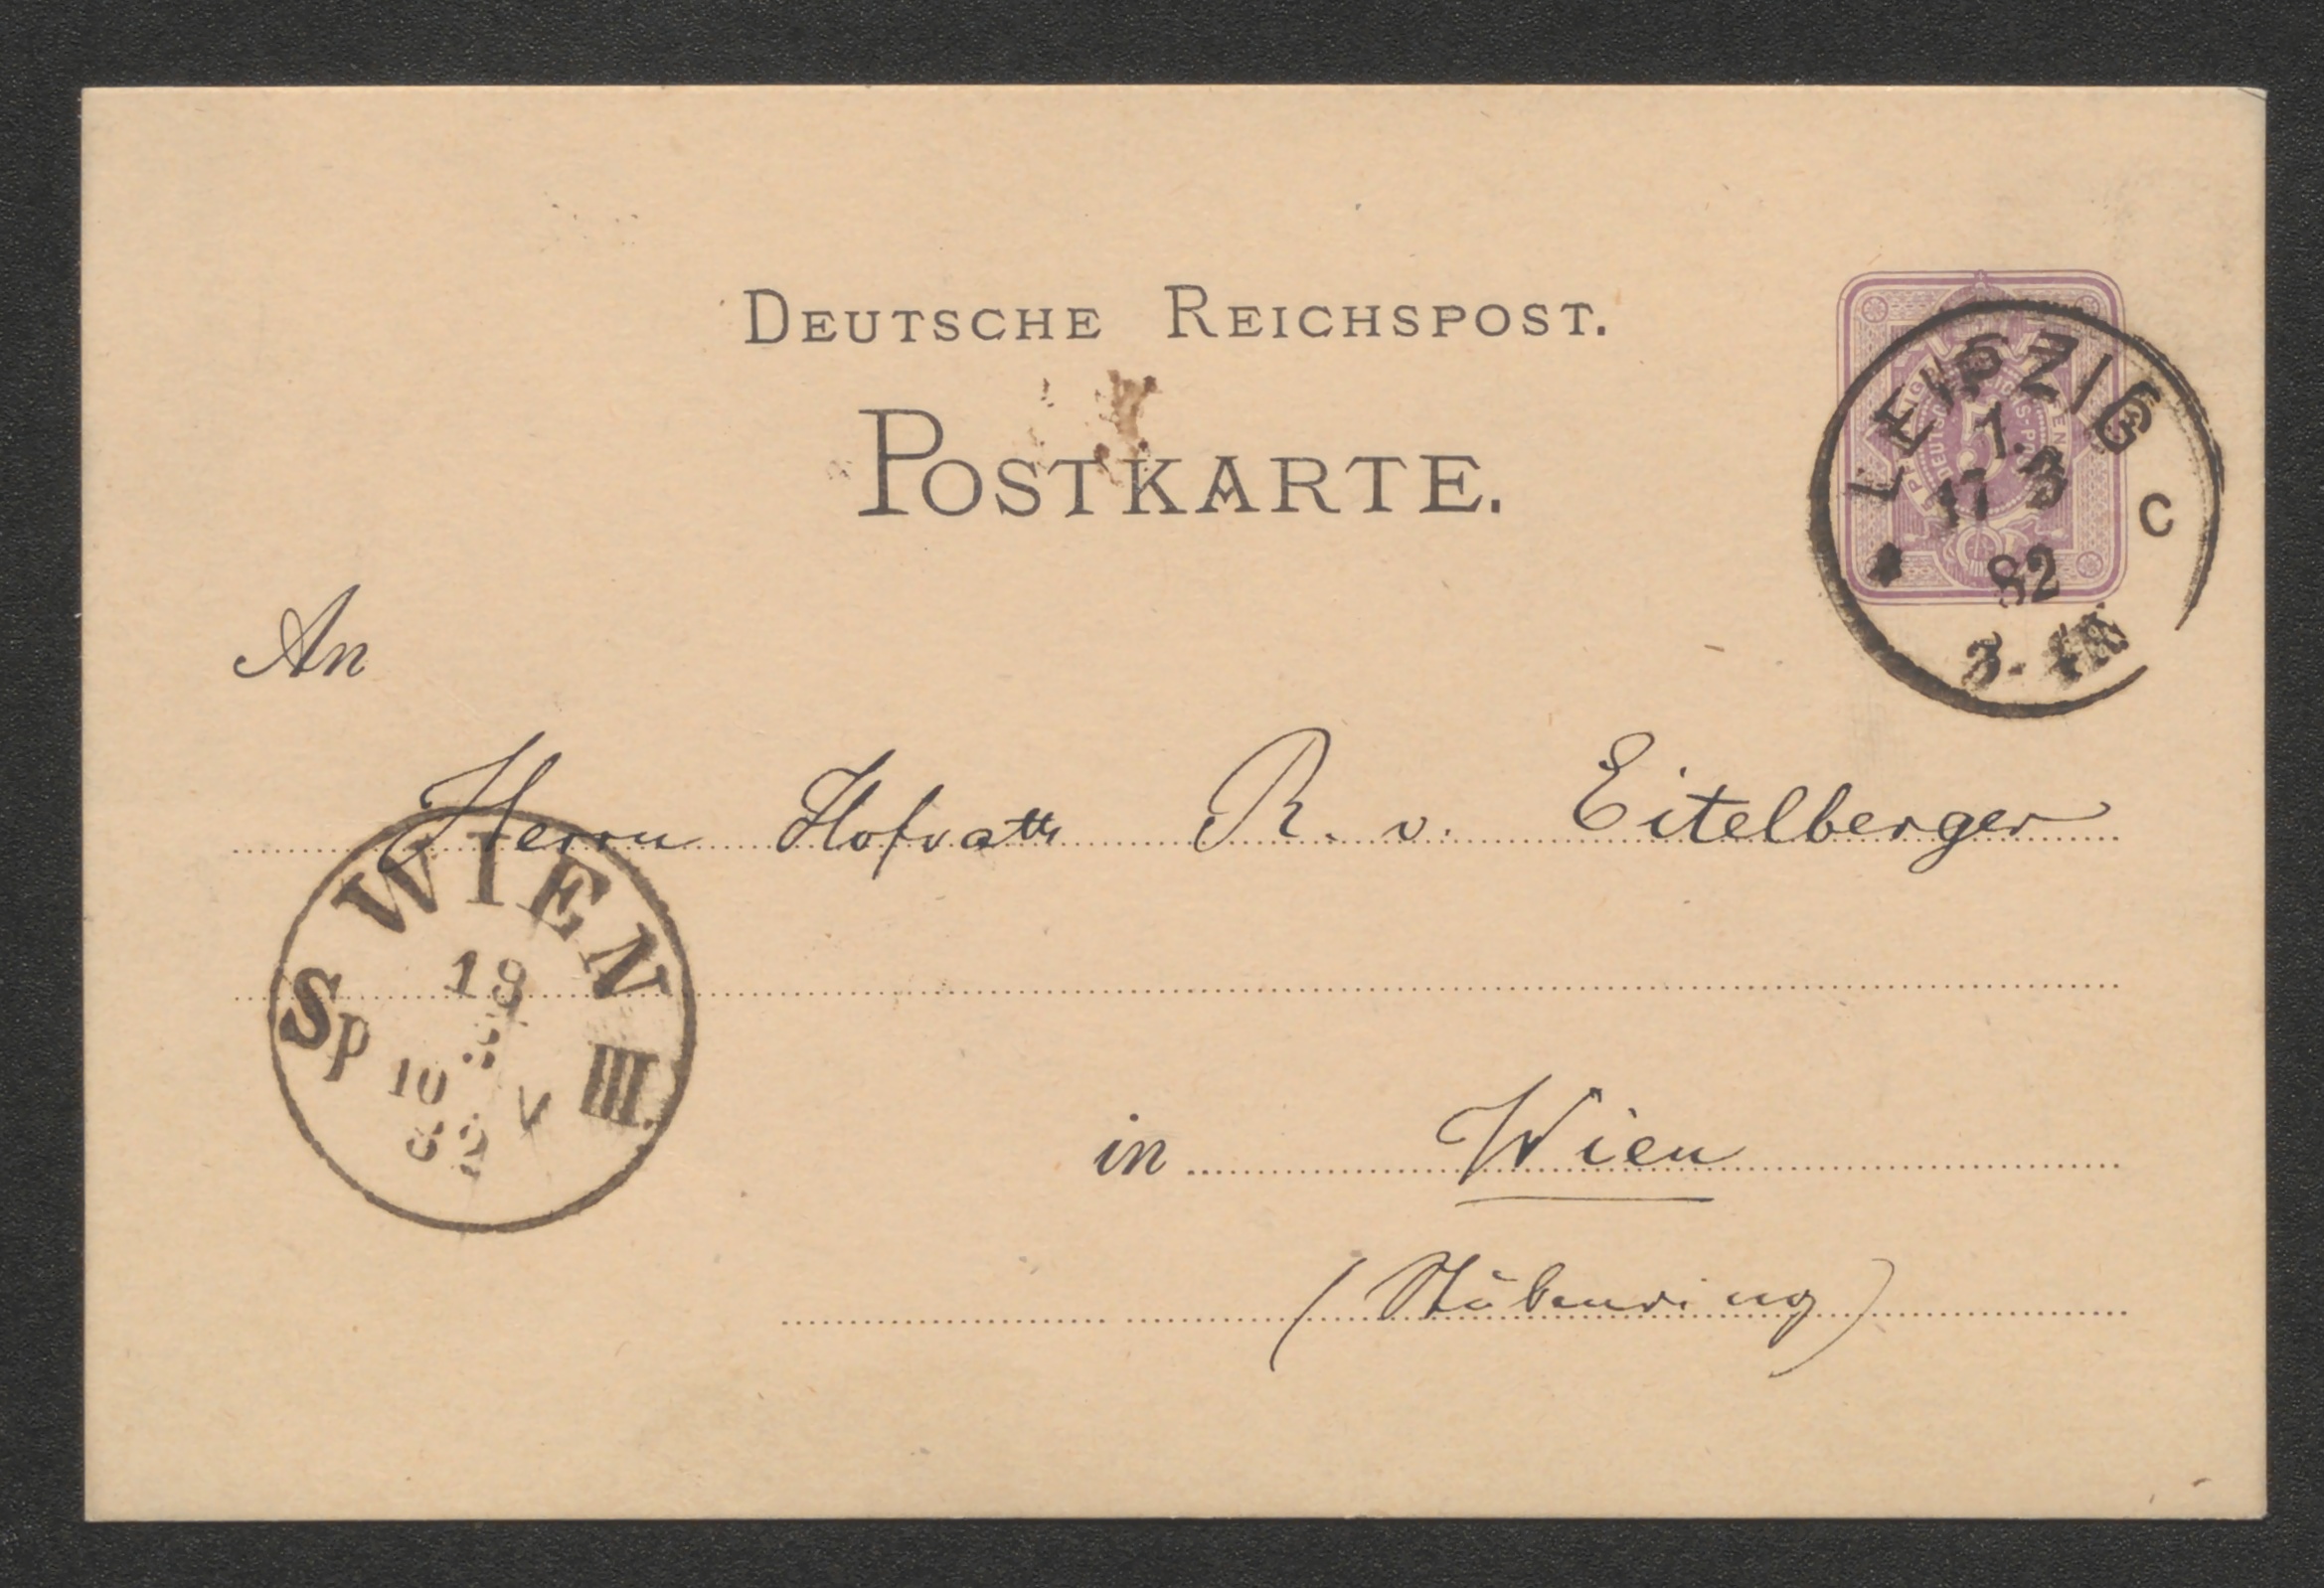 DEUTSCHE REICHSPOST.
POSTKARTE.
LEIPZIG
7.
17 3
82
C
An
Herrn Hofrath R. v. Eitelberger
WIEN
Sp
III.
10 V
82
in Wien
(Stubenring)